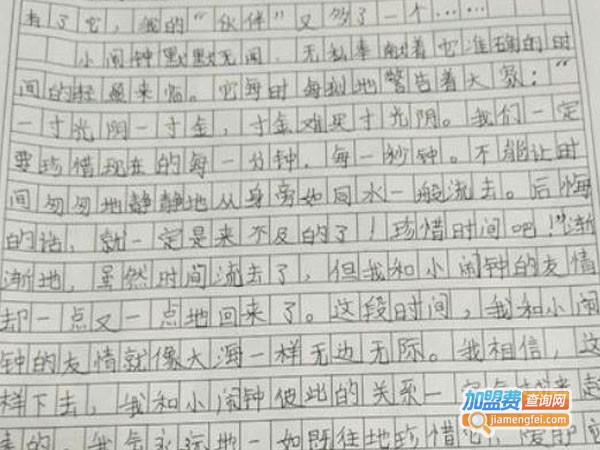 有了它，我的“伙伴”又多了一个……
小闹钟默默无闻，无私奉献着它准确的时
间的轻盈来临。它每时每刻地警告着大家：“
一寸光阴一寸金，寸金难买寸光阴。我们一定
要珍惜现在的每一分钟，每一秒钟。不能让时
间匆匆地静静地从身旁如同水一般流去。后悔
的话，就一定是来不及的了！珍惜时间吧！”渐
渐地，虽然时间流去了，但我和小闹钟的友情
却一点又一点地回来了。这段时间，我和小闹
钟的友情就像大海一样无边无际。我相信，这
样下去，我和小闹钟彼此的关系一定
的，我会永远地一如既往地珍惜它，爱护它
加盟费查询网
jiamengfei.com